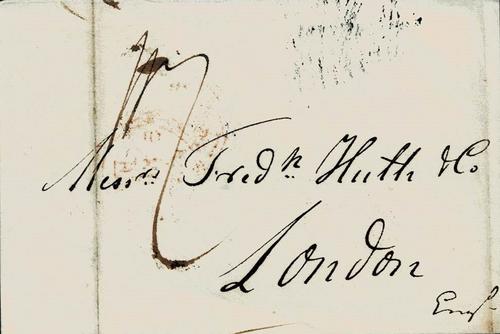 Messrs. Fredk. Huth & Co
London
Engd.